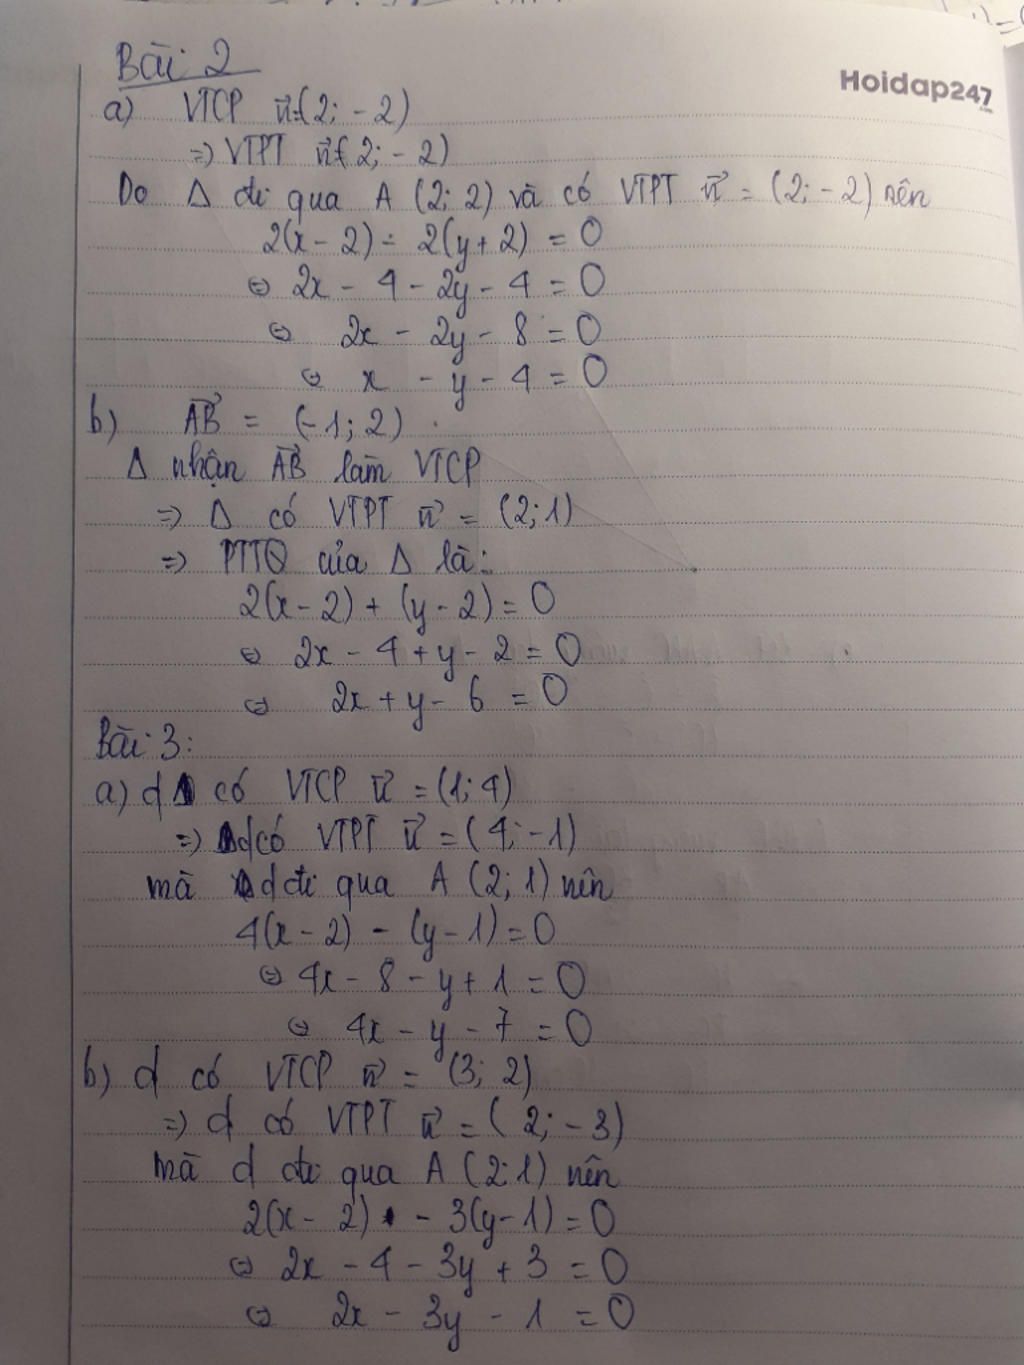 Bài 2
Hoidap247
.com
a) VTCP u⃗=(2; -2)
=> VTPT n⃗=(2; -2)
Do Δ đi qua A (2; 2) và có VTPT n⃗ = (2; -2) nên
2(x - 2) - 2(y + 2) = 0
⇔ 2x - 4 - 2y - 4 = 0
⇔ 2x - 2y - 8 = 0
⇔ x - y - 4 = 0
b) A⃗B⃗ = (-1; 2)
Δ nhận A⃗B⃗ làm VTCP
=> Δ có VTPT n⃗ = (2; 1)
=> PTTQ của Δ là:
2(x - 2) + (y - 2) = 0
⇔ 2x - 4 + y - 2 = 0
⇔ 2x + y - 6 = 0
Bài 3:
a) d có VTCP u⃗ = (1; 4)
=> d có VTPT u⃗ = (4; -1)
mà d đi qua A (2; 1) nên
4(x - 2) - (y - 1) = 0
⇔ 4x - 8 - y + 1 = 0
⇔ 4x - y - 7 = 0
b) d có VTCP u⃗ = (3; 2)
=> d có VTPT u⃗ = (2; -3)
mà d đi qua A (2; 1) nên
2(x - 2) - 3(y - 1) = 0
⇔ 2x - 4 - 3y + 3 = 0
⇔ 2x - 3y - 1 = 0